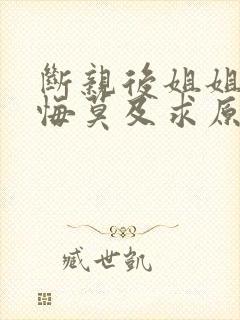 斷親後姐姐
悔莫及求原
臧世凱